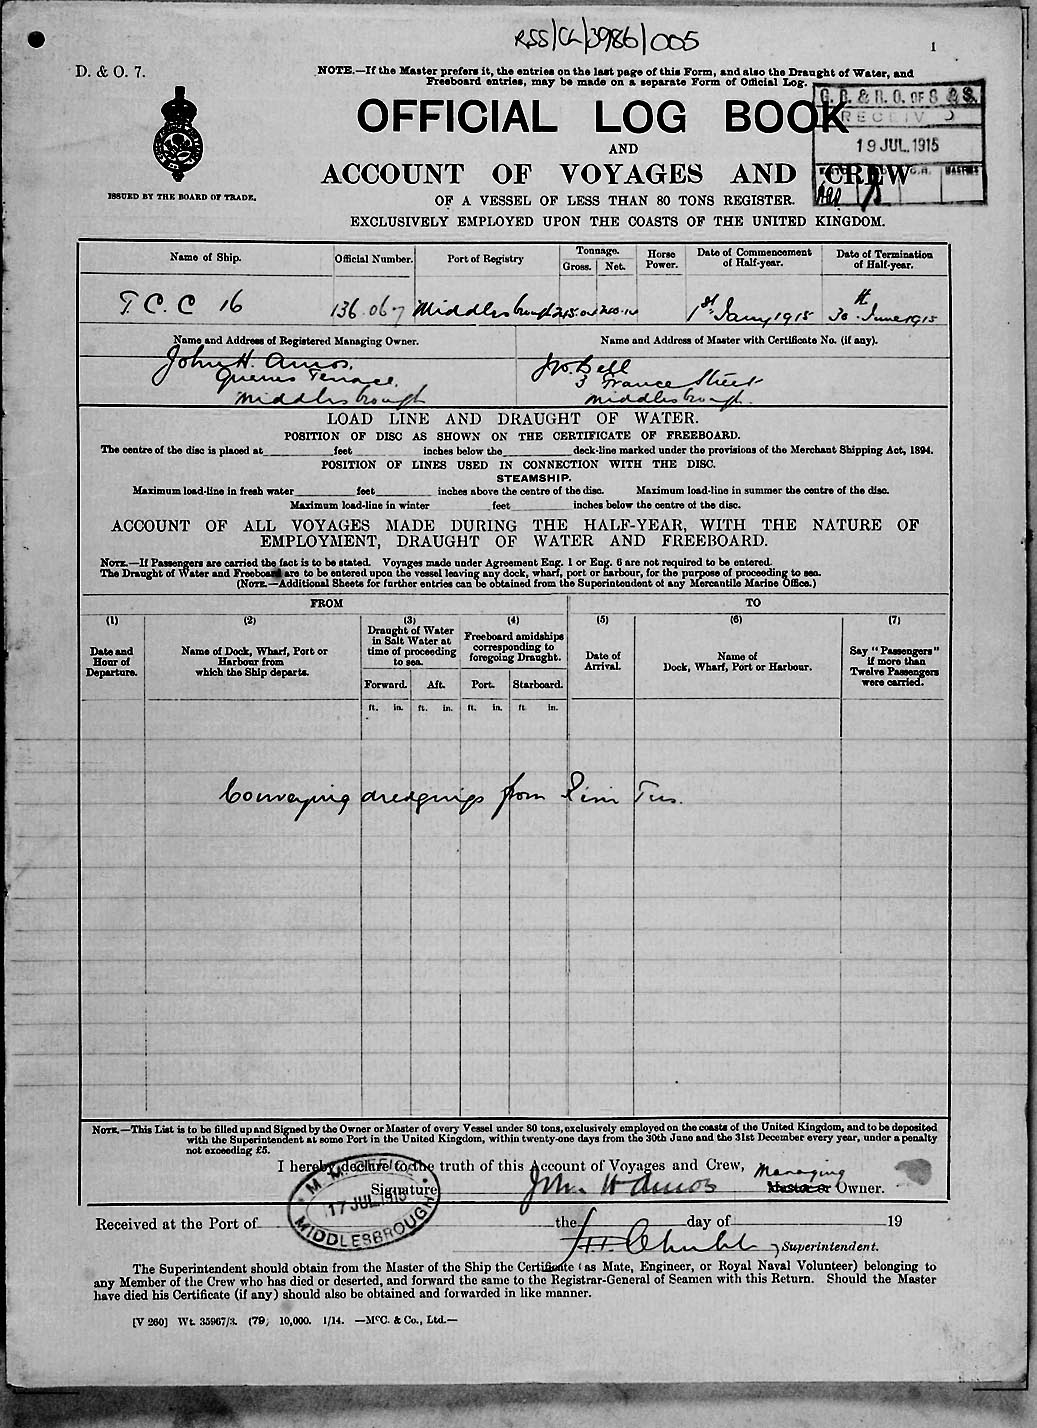 RSS/CL/3986/005
1
D. & O. 7.
NOTE.—If the Master prefers it, the entries on the last page of this Form, and also the Draught of Water, and
Freeboard entries, may be made on a separate Form of Official Log.
OFFICIAL LOG BOOK
AND
ACCOUNT OF VOYAGES AND CREW
OF A VESSEL OF LESS THAN 80 TONS REGISTER.
EXCLUSIVELY EMPLOYED UPON THE COASTS OF THE UNITED KINGDOM.
ISSUED BY THE BOARD OF TRADE.
G. R. & R. O. OF S & S.
RECEIV D
19 JUL. 1915
Name of Ship. Official Number. Port of Registry Tonnage. Gross. Net. Horse Power. Date of Commencement of Half-year. Date of Termination of Half-year.
T. C. C 16 136.067 Middlesbrough 1st Jany 1915 30th June 1915
Name and Address of Registered Managing Owner. Name and Address of Master with Certificate No. (if any).
John H. Amos. Jno. Bell
Queens Terrace. 3 France Street
Middlesbrough Middlesbrough.
LOAD LINE AND DRAUGHT OF WATER.
POSITION OF DISC AS SHOWN ON THE CERTIFICATE OF FREEBOARD.
The centre of the disc is placed at feet inches below the deck-line marked under the provisions of the Merchant Shipping Act, 1894.
POSITION OF LINES USED IN CONNECTION WITH THE DISC.
STEAMSHIP.
Maximum load-line in fresh water feet inches above the centre of the disc. Maximum load-line in summer the centre of the disc.
Maximum load-line in winter feet inches below the centre of the disc.
ACCOUNT OF ALL VOYAGES MADE DURING THE HALF-YEAR, WITH THE NATURE OF
EMPLOYMENT, DRAUGHT OF WATER AND FREEBOARD.
NOTE.—If Passengers are carried the fact is to be stated. Voyages made under Agreement Eng. 1 or Eng. 6 are not required to be entered.
The Draught of Water and Freeboard are to be entered upon the vessel leaving any dock, wharf, port or harbour, for the purpose of proceeding to sea.
(NOTE.—Additional Sheets for further entries can be obtained from the Superintendent of any Mercantile Marine Office.)
FROM TO
(1) (2) (3) (4) (5) (6) (7)
Date and Hour of Departure.
Name of Dock, Wharf, Port or Harbour from which the Ship departs.
Draught of Water in Salt Water at time of proceeding to sea.
Freeboard amidships corresponding to foregoing Draught.
Date of Arrival.
Name of Dock, Wharf, Port or Harbour.
Say "Passengers" if more than Twelve Passengers were carried.
Forward. Aft. Port. Starboard.
ft. in. ft. in. ft. in. ft. in.
Conveying dredgings from River Tees.
NOTE.—This List is to be filled up and Signed by the Owner or Master of every Vessel under 80 tons, exclusively employed on the coasts of the United Kingdom, and to be deposited
with the Superintendent at some Port in the United Kingdom, within twenty-one days from the 30th June and the 31st December every year, under a penalty
not exceeding £5.
I hereby declare to the truth of this Account of Voyages and Crew, Managing
Signature John H Amos Master or Owner.
M. M. OFFICE
17 JUL 1915
MIDDLESBROUGH
Received at the Port of the day of 19
Superintendent.
The Superintendent should obtain from the Master of the Ship the Certificate (as Mate, Engineer, or Royal Naval Volunteer) belonging to
any Member of the Crew who has died or deserted, and forward the same to the Registrar-General of Seamen with this Return. Should the Master
have died his Certificate (if any) should also be obtained and forwarded in like manner.
[V 260] Wt. 35967/3. (79) 10,000. 1/14. —McC. & Co., Ltd.—